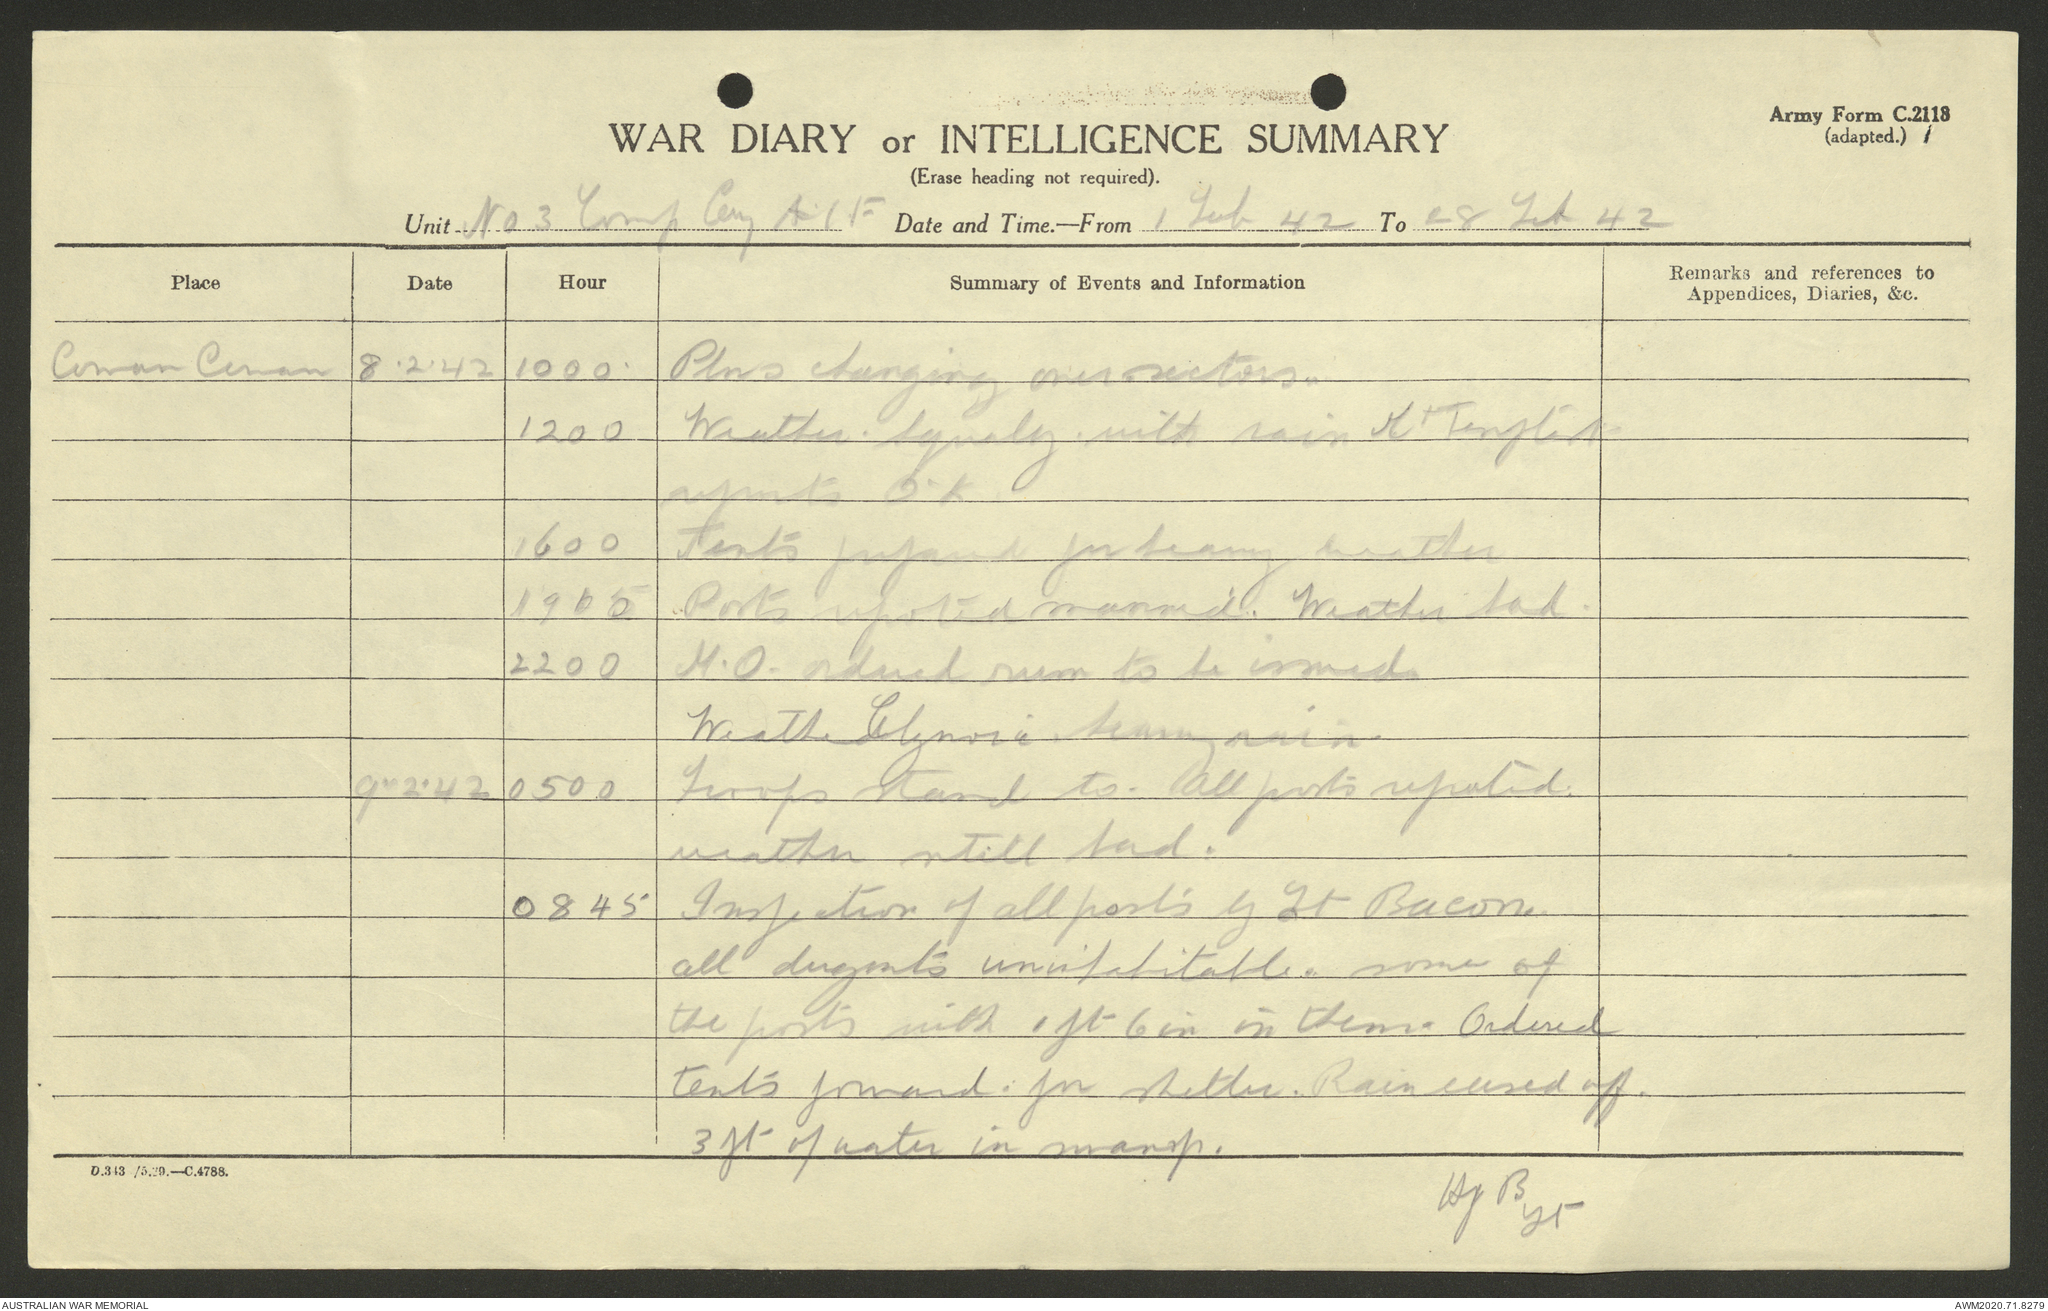 Army Form C.2118
(adapted.) 1
WAR DIARY or INTELLIGENCE SUMMARY
(Erase heading not required).
Unit No 3 Comp Coy A.I.F Date and Time.—From 1 Feb 42 To 28 Feb 42
Place Date Hour Summary of Events and Information Remarks and references to
Appendices, Diaries, &c.
8.2.42 1000. Plns changing over sectors.
1200 Weather. Squaly. with rain
reports O.K.
1600 Tents prepared for heavy weather
1905 Posts reported manned. Weather bad.
2200 M.O. ordered rum to be issued.
Weather heavy rain.
9.2.42 0500 Troops stand to. All posts reported.
weather still bad.
0845 Inspection of all posts by Lt Bacon.
all dugouts uninhabitable. some of
the posts with 1 ft 6 in in them. Ordered
tents forward. for shelter. Rain eased off.
3 ft of water in swamp.
D.343 /5.39.—C.4788.
Lt
AUSTRALIAN WAR MEMORIAL AWM2020.71.8279